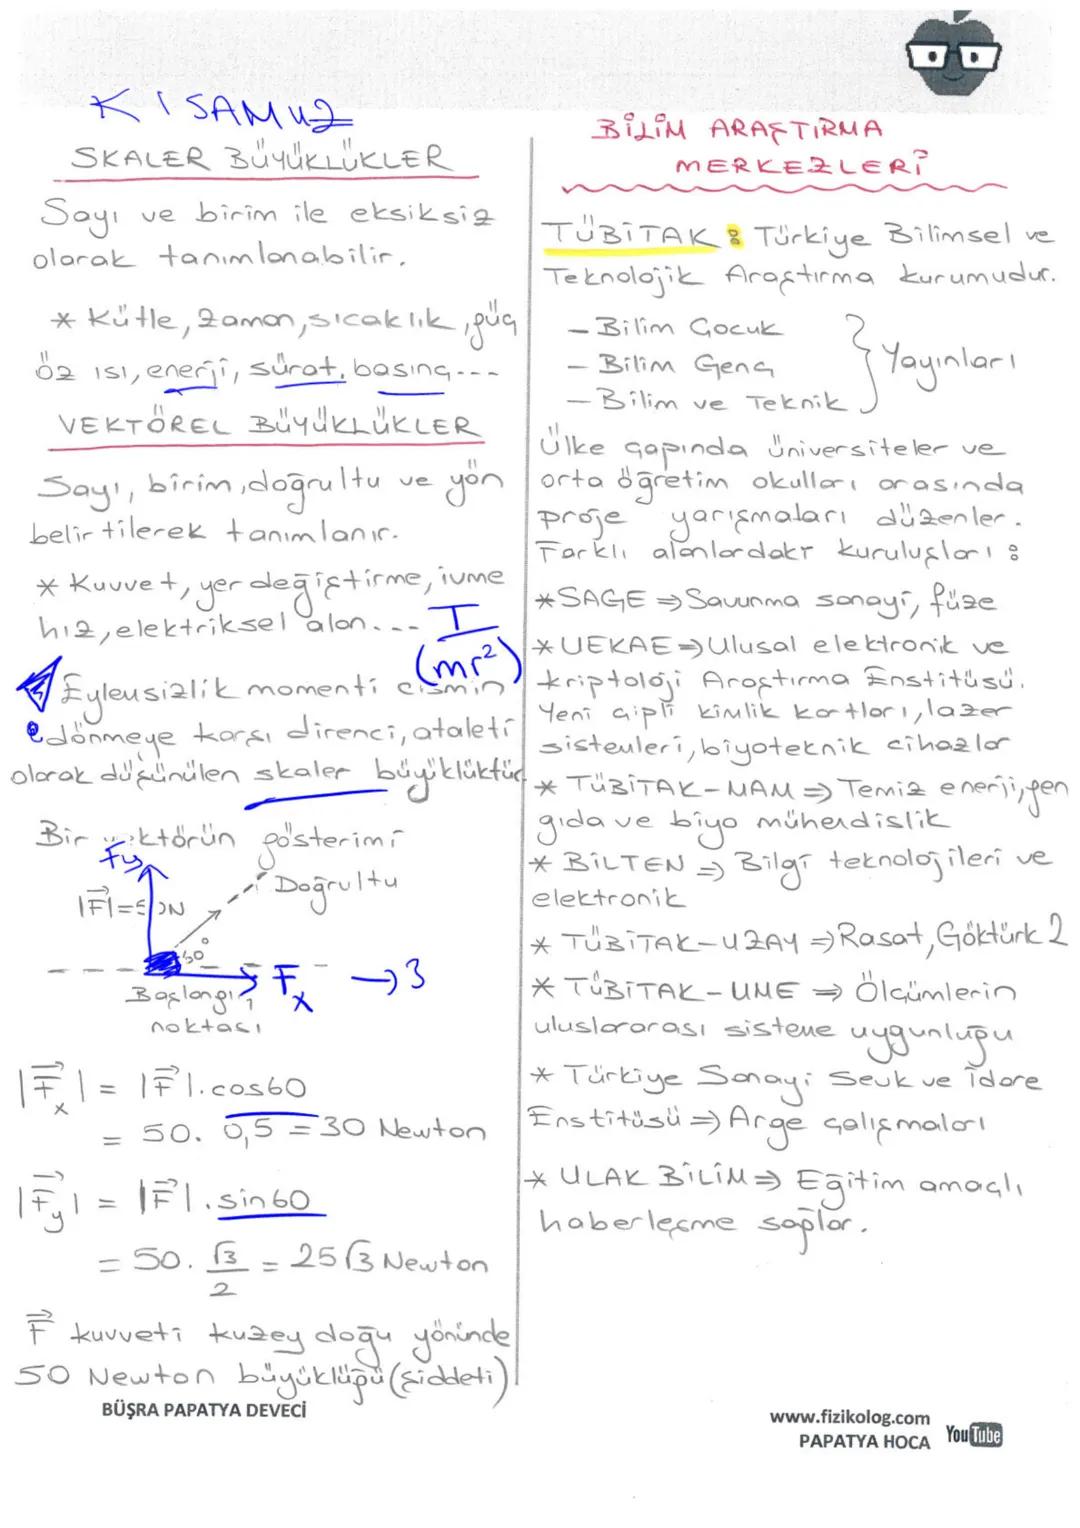 KISAMUZ
SKALER BÜYÜKLÜKLER
Sayı ve birim ile eksiksiz
olarak tanımlanabilir.
* Kütle, zaman, sıcaklık, güç
öz ısı, enerji, sürat, basınç...
VEKTÖREL BÜYÜKLÜKLER
Sayı, birim, doğrultu ve yön
belirtilerek tanımlanır.
* Kuvvet, yer değiştirme, ivme
hız, elektriksel alan...
I
(mr²)
Eylemsizlik momenti cismin
dönmeye karşı direnci, ataleti
olarak düşünülen skaler büyüklüktür
Bir vektörün gösterimi
Fy
Doğrultu
|F|=50N
60°
Fx → 3
Başlangıç
noktası
|Fx| = |F|.cos60
= 50. 0,5 = 30 Newton
|Fy| = |F|.sin60
= 50. √3/2 = 25√3 Newton
F kuvveti kuzey doğu yönünde
50 Newton büyüklüğü (şiddeti)
BÜŞRA PAPATYA DEVECİ
BİLİM ARAŞTIRMA
MERKEZLERİ
TÜBİTAK : Türkiye Bilimsel ve
Teknolojik Araştırma kurumudur.
- Bilim Çocuk
- Bilim Genç
- Bilim ve Teknik
} Yayınları
Ülke çapında üniversiteler ve
orta öğretim okulları arasında
proje yarışmaları düzenler.
Farklı alanlardaki kuruluşları :
*SAGE ⇒ Savunma sanayi, füze
*UEKAE ⇒ Ulusal elektronik ve
kriptoloji Araştırma Enstitüsü.
Yeni çipli kimlik kartları, lazer
sistemleri, biyoteknik cihazlar
* TÜBİTAK-MAM ⇒ Temiz enerji, gen
gıda ve biyo mühendislik
* BİLTEN ⇒ Bilgi teknolojileri ve
elektronik
* TÜBİTAK-UZAY ⇒ Rasat, Göktürk 2
* TÜBİTAK-UME ⇒ Ölçümlerin
uluslararası sisteme uygunluğu
* Türkiye Sanayi Sevk ve İdare
Enstitüsü ⇒ Arge çalışmaları
* ULAK BİLİM ⇒ Eğitim amaçlı
haberleşme sağlar.
www.fizikolog.com
PAPATYA HOCA YouTube